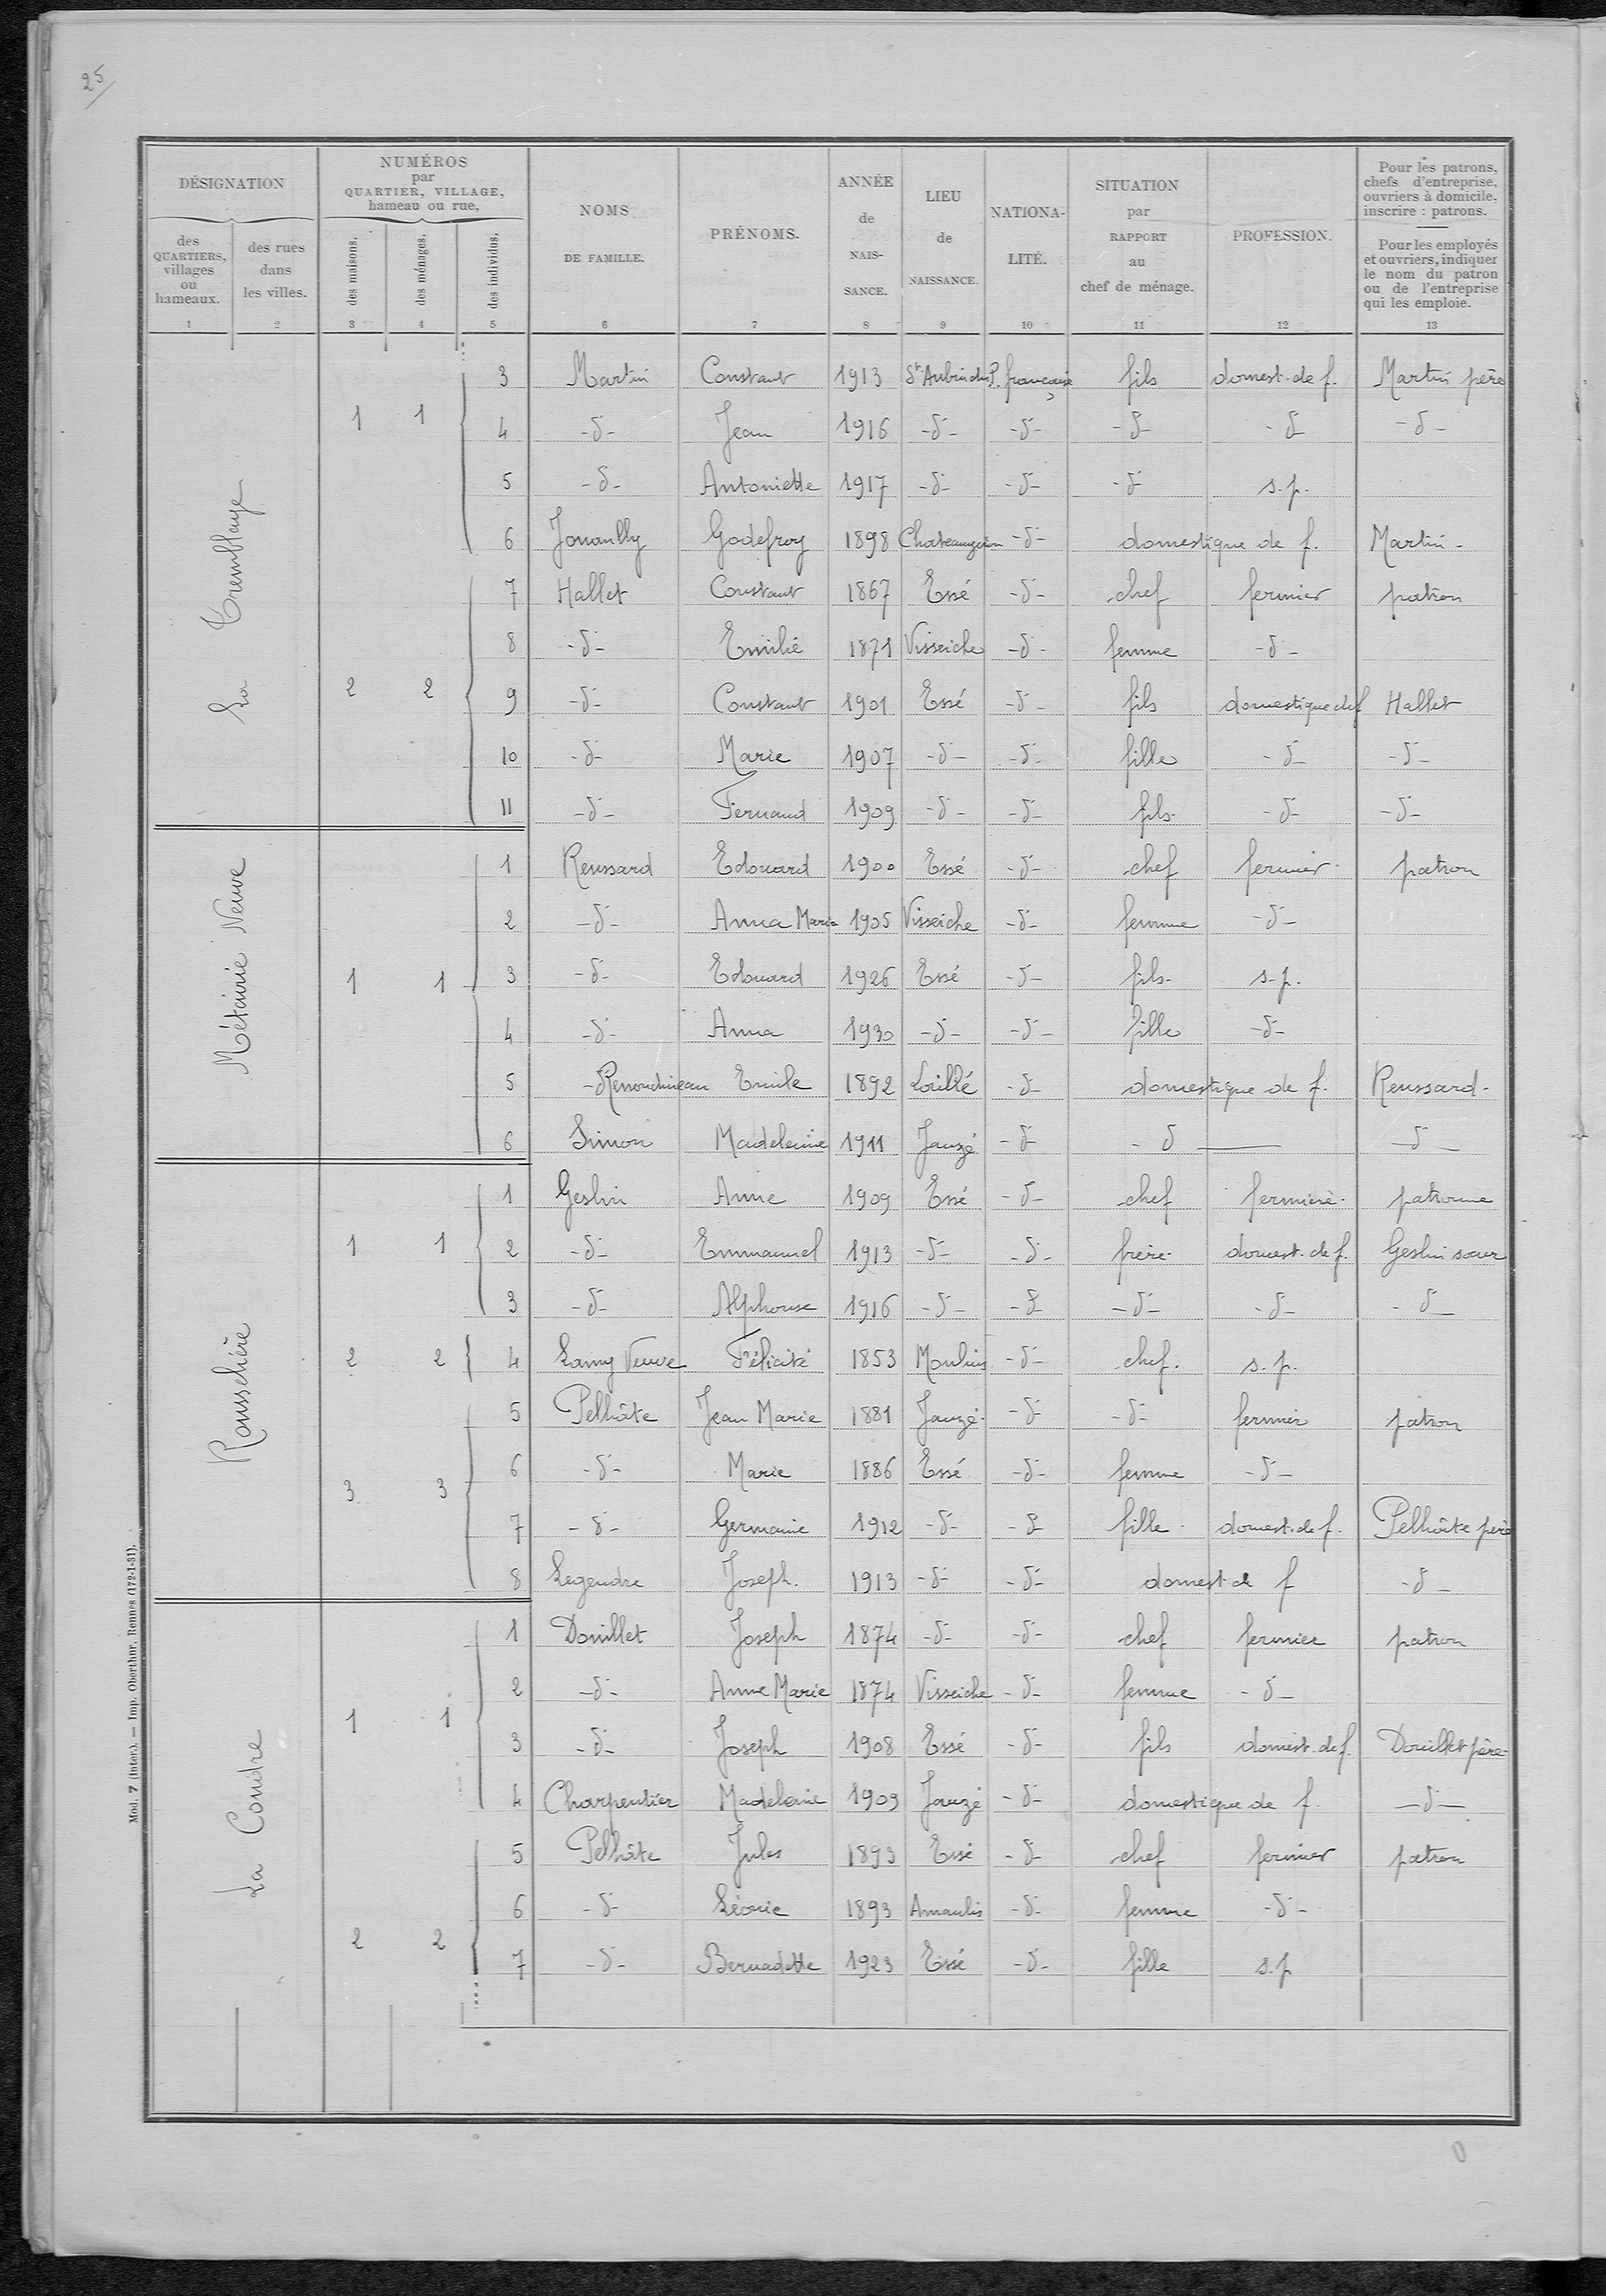 25
DÉSIGNATION
NUMÉROS
par
QUARTIER, VILLAGE,
hameau ou rue,
des
QUARTIERS,
villages
ou
hameaux.
des rues
dans
les villes.
des maisons.
des ménages.
des individus.
NOMS
DE FAMILLE.
PRÉNOMS.
ANNÉE
de
NAIS-
SANCE.
LIEU
de
NAISSANCE.
NATIONA-
LITÉ.
SITUATION
par
RAPPORT
au
chef de ménage.
PROFESSION.
Pour les patrons,
chefs d'entreprise,
ouvriers à domicile,
inscrire : patrons.
Pour les employés
et ouvriers, indiquer
le nom du patron
ou de l'entreprise
qui les emploie.
1 2 3 4 5 6 7 8 9 10 11 12 13
La Tremblaye
1 1
3 Martin Constant 1913 St Aubin du P. française fils domest. de f. Martin père
4 -d- Jean 1916 -d- -d- -d- -d- -d-
5 -d- Antoinette 1917 -d- -d- -d- s.p.
6 Godefroy 1898 -d- domestique de f. Martin -
2 2
7 Hallet Constant 1867 Essé -d- chef fermier patron
8 -d- Emilie 1871 Visseiche -d- femme -d-
9 -d- Constant 1901 Essé -d- fils domestique de f Hallet
10 -d- Marie 1907 -d- -d- fille -d- -d-
11 -d- Fernand 1909 -d- -d- fils -d- -d-
Métairie Neuve
1 1
1 Reussard Edouard 1900 Essé -d- chef fermier patron
2 -d- Anna Marie 1905 Visseiche -d- femme -d-
3 -d- Edouard 1926 Essé -d- fils s.p.
4 -d- Anna 1930 -d- -d- fille -d-
5 Emile 1892 -d- domestique de f. Reussard -
6 Simon Madeleine 1911 Janzé -d- -d- -d-
Rousselière
1 1
1 Geslin Anne 1909 Essé -d- chef fermière patronne
2 -d- Emmanuel 1913 -d- -d- frère domest. de f. Geslin sœur
3 -d- Alphonse 1916 -d- -d- -d- -d- -d-
2 2
4 Lamy Veuve Félicité 1853 Moulins -d- chef. s.p.
3 3
5 Pelhâte Jean Marie 1881 Janzé -d- -d- fermier patron
6 -d- Marie 1886 Essé -d- femme -d-
7 -d- Germaine 1912 -d- -d- fille domest. de f. Pelhâte père
8 Legendre Joseph 1913 -d- -d- domest de f -d-
La Coudre
1 1
1 Douillet Joseph 1874 -d- -d- chef fermier patron
2 -d- Anne Marie 1874 Visseiche -d- femme -d-
3 -d- Joseph 1908 Essé -d- fils domest. de f. Douillet père
4 Charpentier Madeleine 1909 Janzé -d- domestique de f. -d-
2 2
5 Pelhâte Jules 1893 Essé -d- chef fermier patron
6 -d- Léonie 1893 Amanlis -d- femme -d-
7 -d- Bernadette 1923 Essé -d- fille s.p
Mod. 7 (Inter.). — Imp. Oberthur, Rennes (172-1-31).
0